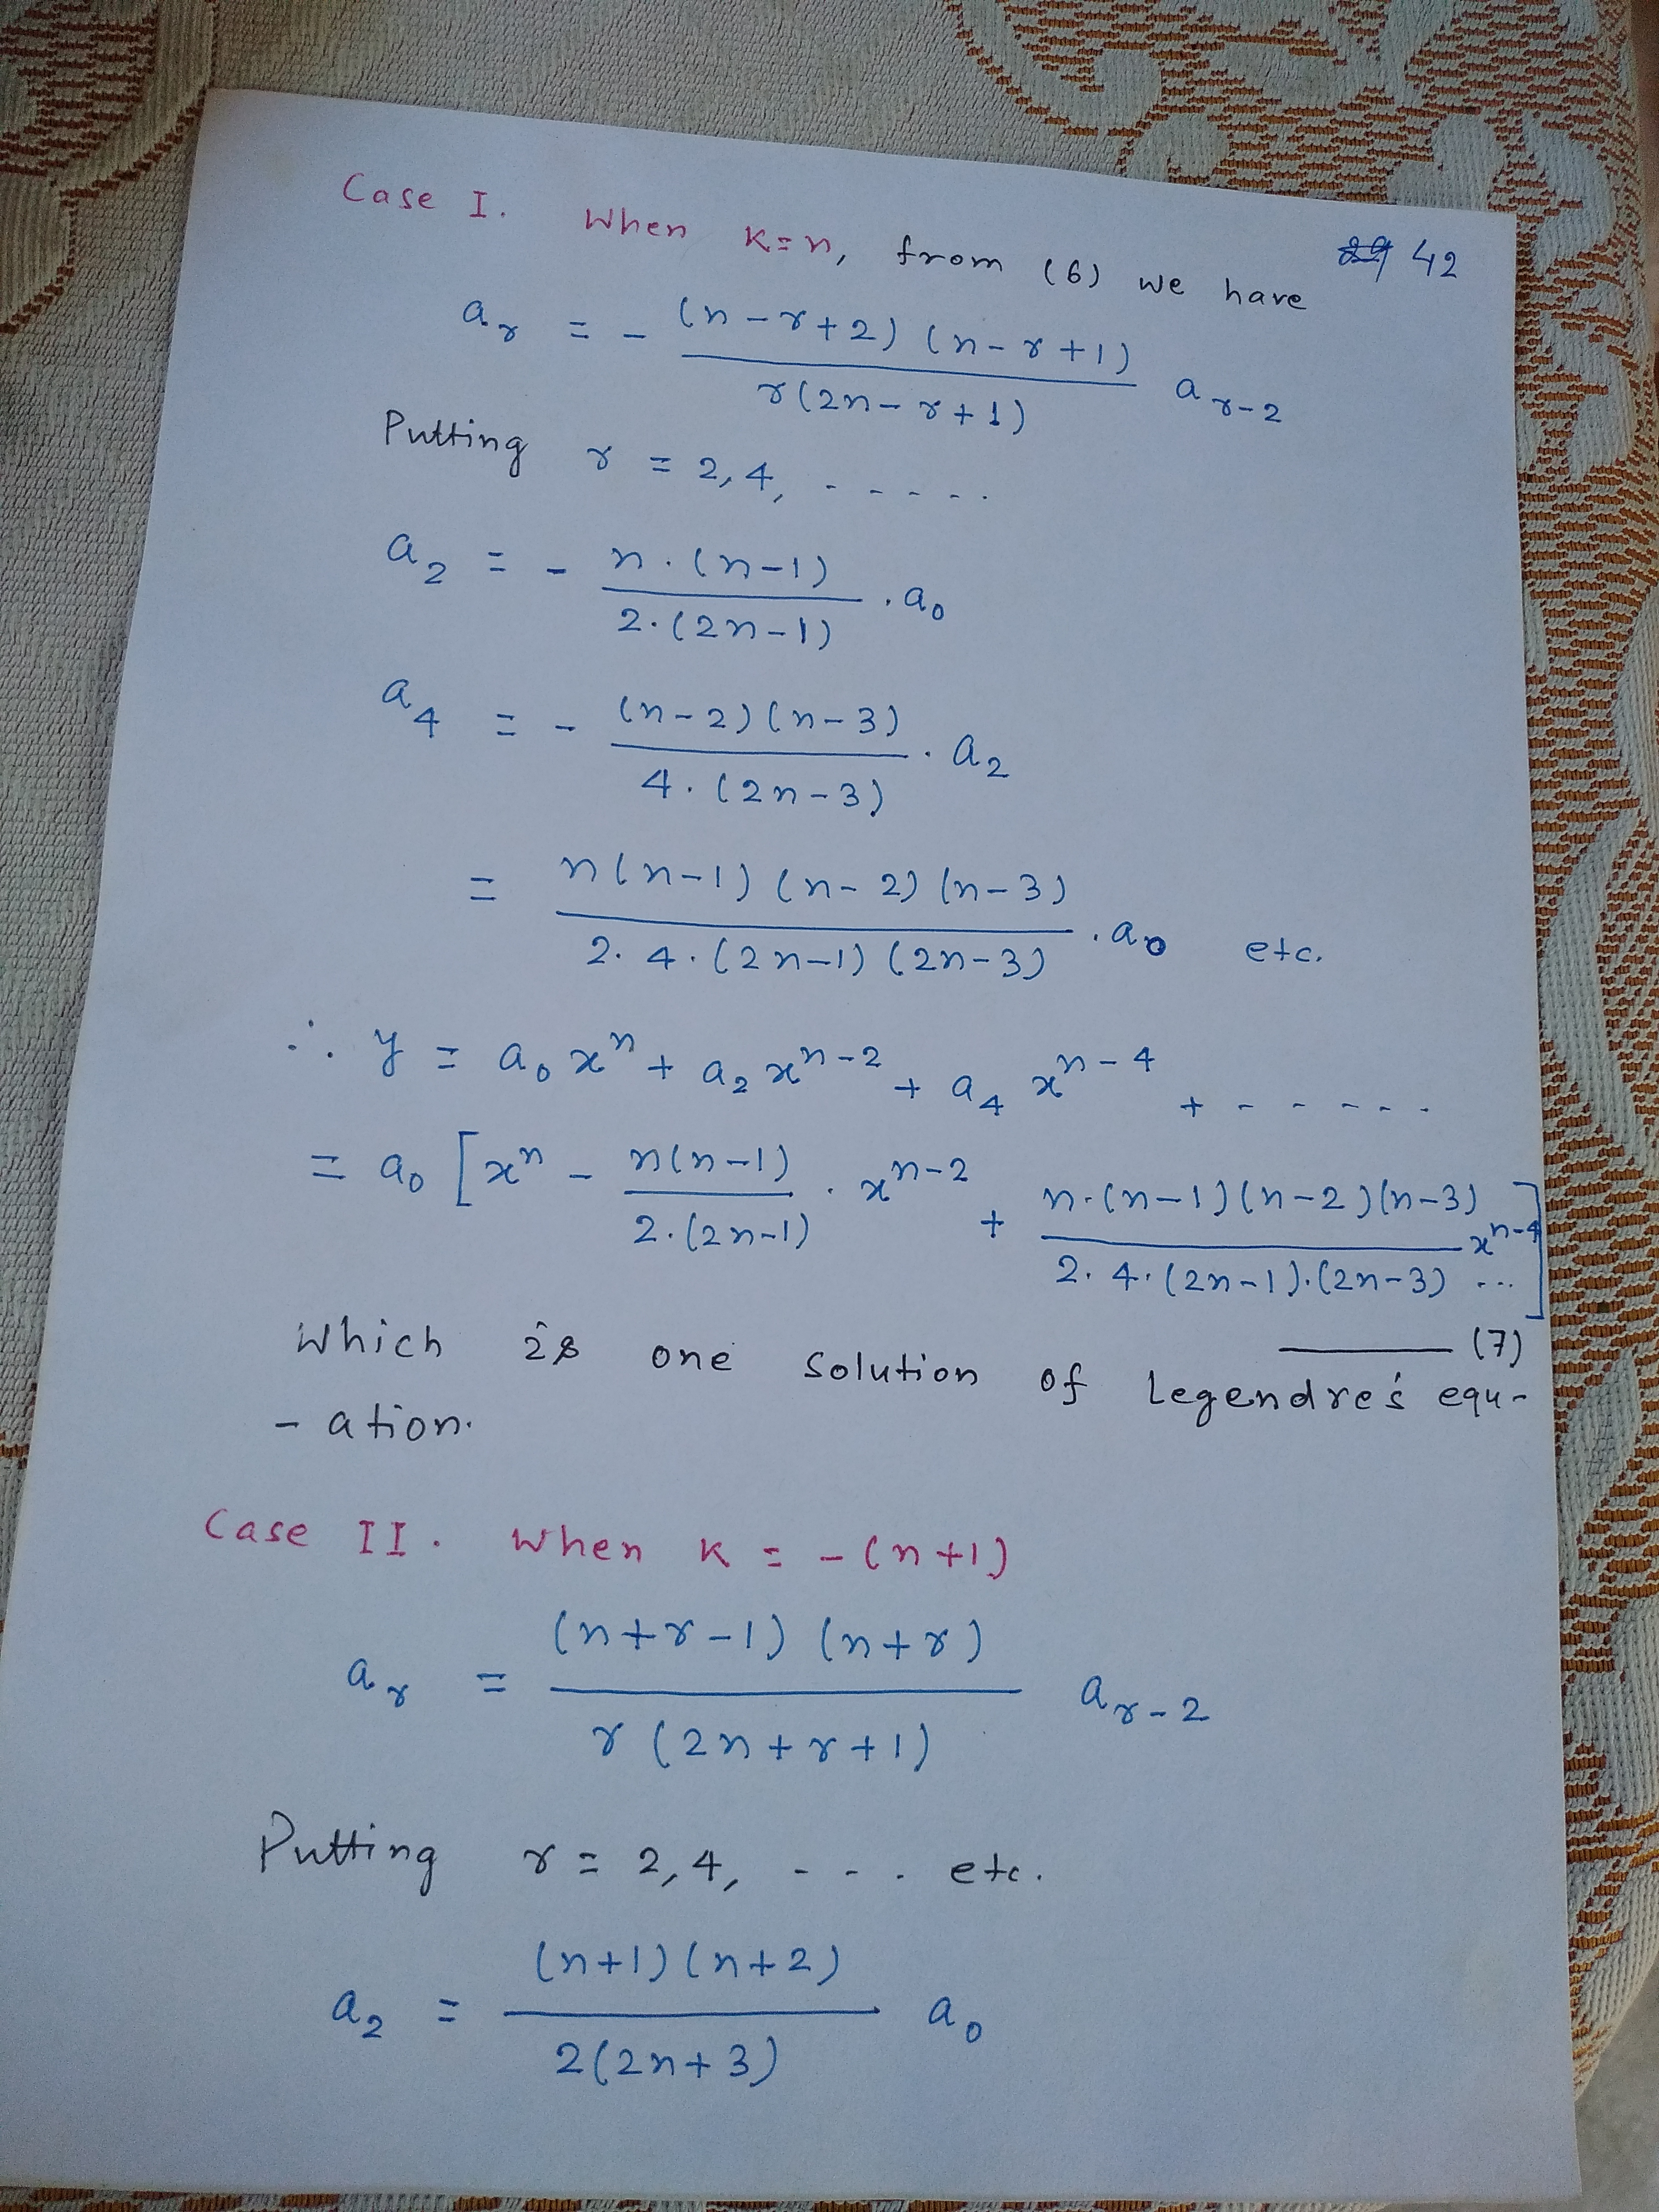 Case I. When K=n, from (6) we have
42
a_r = - (n-r+2) (n-r+1) / r(2n-r+1) a_{r-2}
Putting r = 2,4, - - - - -
a_2 = - n.(n-1) / 2.(2n-1) . a_0
a_4 = - (n-2)(n-3) / 4.(2n-3) . a_2
= n(n-1)(n-2)(n-3) / 2.4.(2n-1)(2n-3) . a_0 etc.
∴ y = a_0 x^n + a_2 x^{n-2} + a_4 x^{n-4} + - - - - -
= a_0 [x^n - n(n-1) / 2.(2n-1) . x^{n-2} + n.(n-1)(n-2)(n-3) / 2.4.(2n-1).(2n-3) x^{n-4} ...]
—— (7)
Which is one solution of Legendre's equ-
-ation.
Case II. When K = -(n+1)
a_r = (n+r-1) (n+r) / r(2n+r+1) a_{r-2}
Putting r = 2,4, - - - etc.
a_2 = (n+1)(n+2) / 2(2n+3) a_0